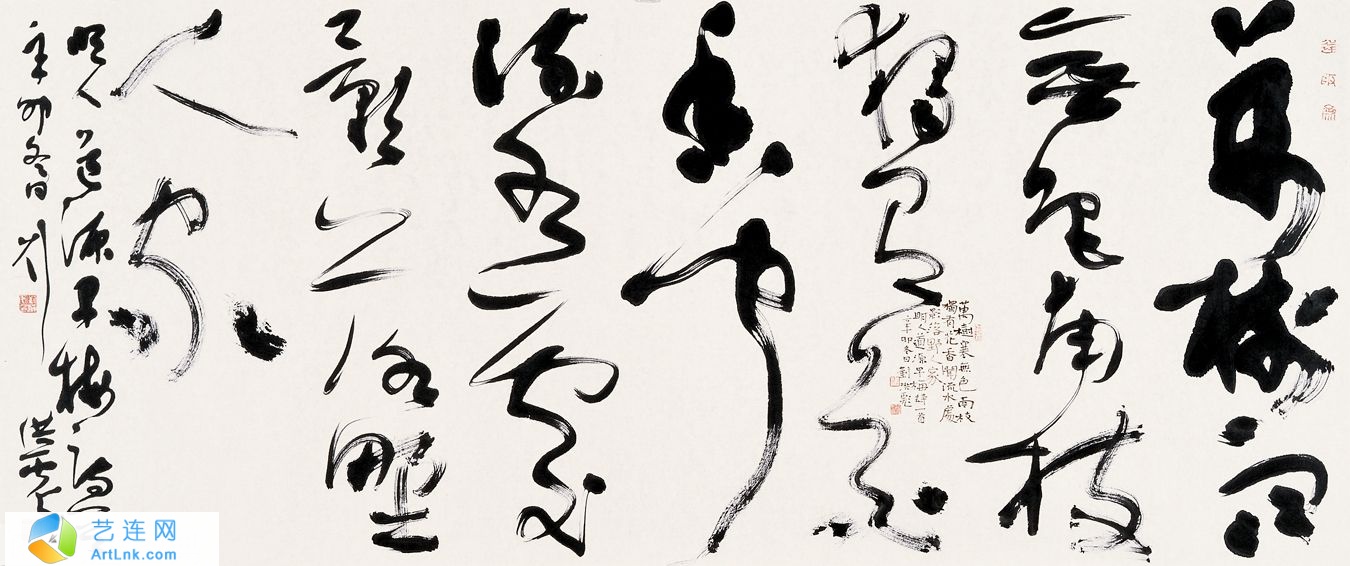 萬樹寒
無色南枝
獨有花
香聞
流水處
影落野
人家
明人道源早梅詩
辛卯冬日劉洪彪
萬樹寒無色南枝
獨有花香聞流水處
影落野人家
明人道源早梅詩一首
辛卯冬日劉洪彪
艺连网
ArtLnk.com